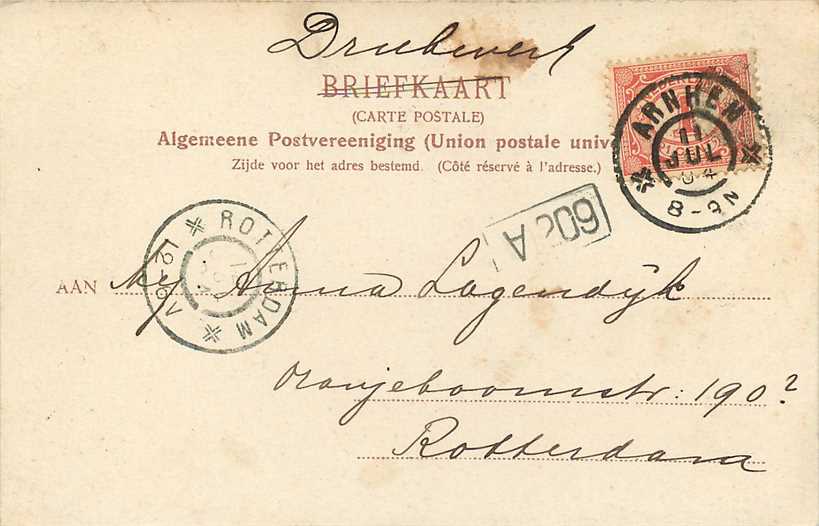 Drukwerk
BRIEFKAART
(CARTE POSTALE)
Algemeene Postvereeniging (Union postale unive
Zijde voor het adres bestemd. (Côté réservé à l'adresse.)
ARNHEM
11
JUL
04
8-9N
ROTTERDAM
12-6V
AAN Mej. Anna Lagendijk
Oranjeboomstr: 190²
Rotterdam